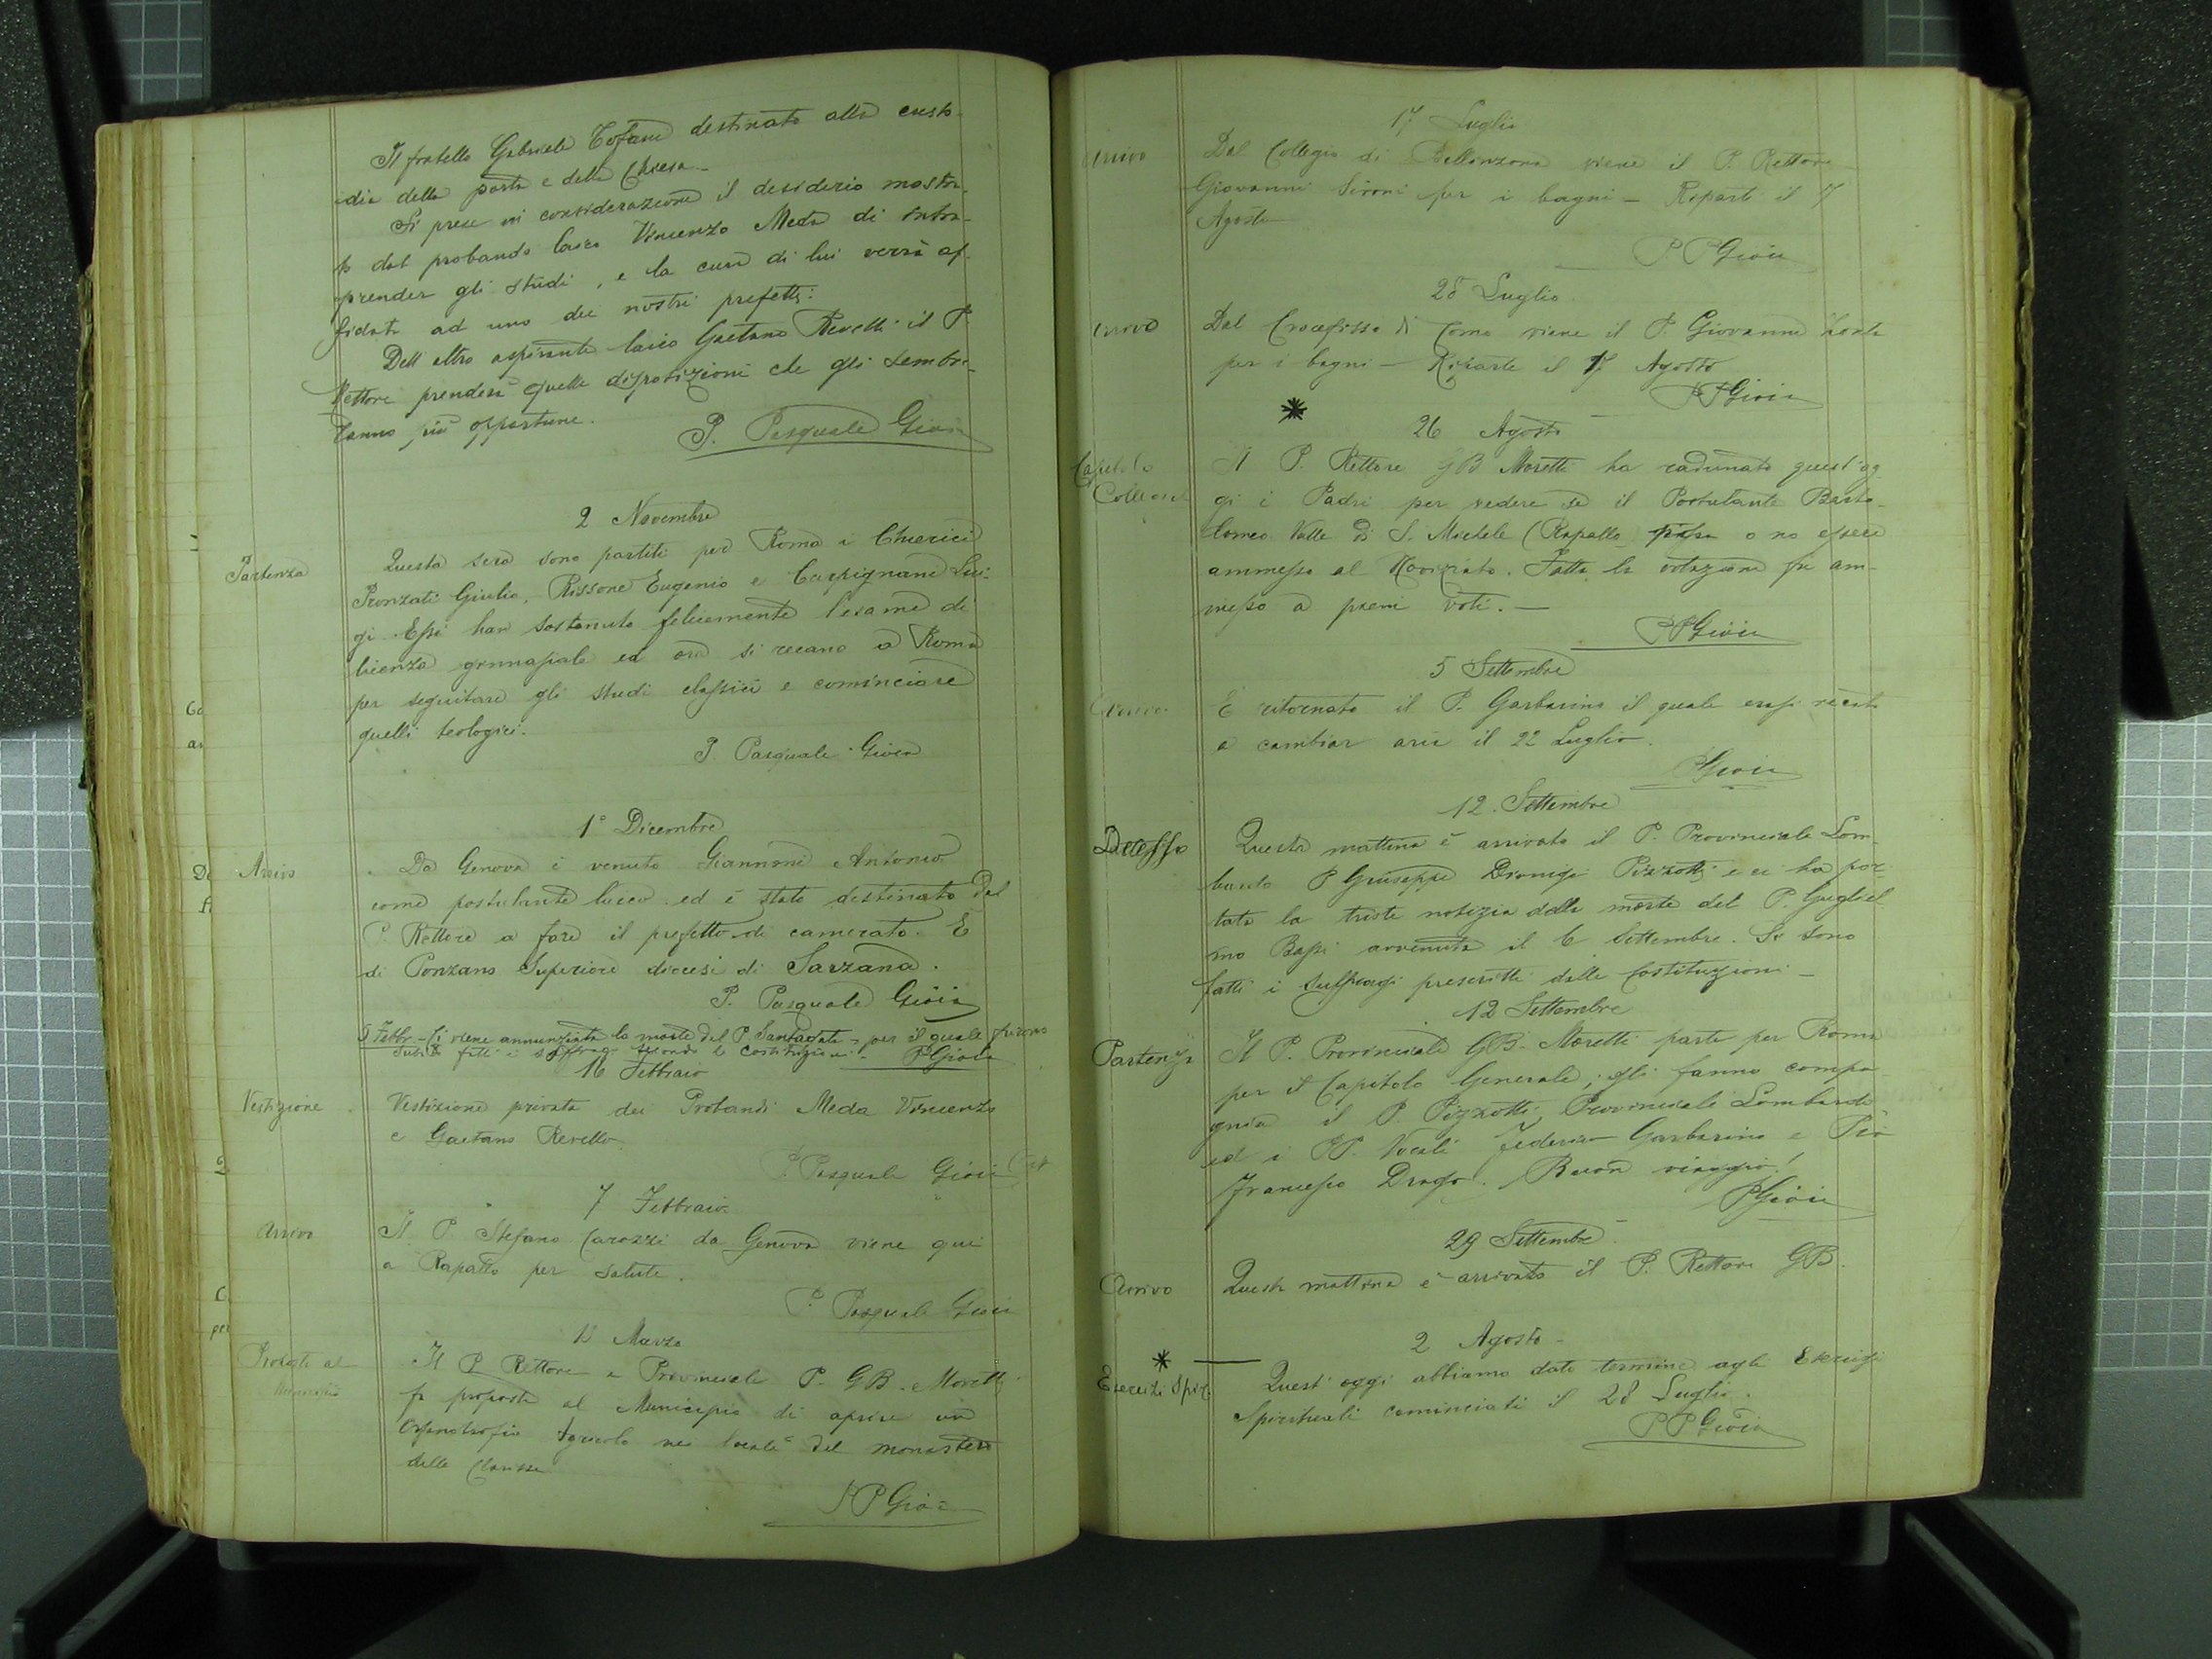 Il fratello Gabriele Tofani destinato alla custo-
dia della porta e della Chiesa.-
Si prese in considerazione il desiderio mostra-
to dal probando laico Vincenzo Meda di intra-
prender gli studi, e la cura di lui verrà af-
fidata ad uno dei nostri prefetti:
Dell'altro aspirante laico Gaetano Revelli il P.
Rettore prenderà quelle disposizioni che gli sembre-
ranno più opportune.
P. Pasquale Gioia
2 Novembre
Partenza
Questa sera sono partiti per Roma i Chierici
Pronzati Giulio, Rissone Eugenio e Carpignani Lui-
gi. Essi han sostenuto felicemente l'esame di
licenza ginnasiale ed ora si recano a Roma
per seguitare gli studi classici e cominciare
quelli teologici.
P. Pasquale Gioia
1° Dicembre
Arrivo
Da Genova è venuto Giannoni Antonio
come postulante laico ed è stato destinato dal
P. Rettore a fare il prefetto di camerata. È
di Ponzano Superiore diocesi di Sarzana.
P. Pasquale Gioia
5 Febbr.- Ci viene annunziata la morte del P. Santagata - per il quale furono
subito fatti i suffragi secondo le Costituzioni. PGioia
16 Febbraio
Vestizione
Vestizione privata dei Probandi Meda Vincenzo
e Gaetano Revello
P. Pasquale Gioia
7 Febbraio
Arrivo
Il P. Stefano Carozzi da Genova viene qui
a Rapallo per salute.
P. Pasquale Gioia
13 Marzo
Proposta al
Municipio
Il P. Rettore e Provinciale P. GB. Moretti
fa proposta al Municipio di aprire un
Orfanotrofio Agricolo nei locali del monastero
delle Clarisse
P P Gioia
17 Luglio
Arrivo
Dal Collegio di Bellinzona viene il P. Rettore
Giovanni Sironi per i bagni - Ripartì il 17
Agosto
P P Gioia
28 Luglio
Arrivo
Dal Crocefisso di Como viene il P. Giovanni
per i bagni - Riparte il 17 Agosto
P P Gioia
*
26 Agosto
Capitolo
Collegiale
Il P. Rettore GB Moretti ha radunato quest'og-
gi i Padri per vedere se il Postulante Barto-
lomeo Valle di S. Michele (Rapallo possa o no essere
ammesso al Noviziato. Fatta la votazione fu am-
messo a pieni voti. -
P P Gioia
5 Settembre
Arrivo
È ritornato il P. Garbarino il quale erasi recato
a cambiar aria il 22 Luglio.
PGioia
12. Settembre
Decesso
Questa mattina è arrivato il P. Provinciale Lom-
bardo P Giuseppe Dionigi Pizzotti e ci ha por-
tata la triste notizia della morte del P. Gugliel-
mo Bassi avvenuta il 6 Settembre. Si sono
fatti i suffragi prescritti dalle Costituzioni -
12 Settembre
Partenza
Il P. Provinciale GB. Moretti parte per Roma
per il Capitolo Generale; gli fanno compa-
gnia il P. Pizzotti Provinciale Lombardo
ed i PP. Vocali Federico Garbarino e Pio
Francesco Drago. Buon viaggio!
PGioia
29 Settembre
Arrivo
Questa mattina è arrivato il P. Rettore GB.
2 Agosto -
*
Esercizi Spir.
Quest'oggi abbiamo dato termine agli Esercizi
Spirituali cominciati il 28 Luglio.
P P Gioia